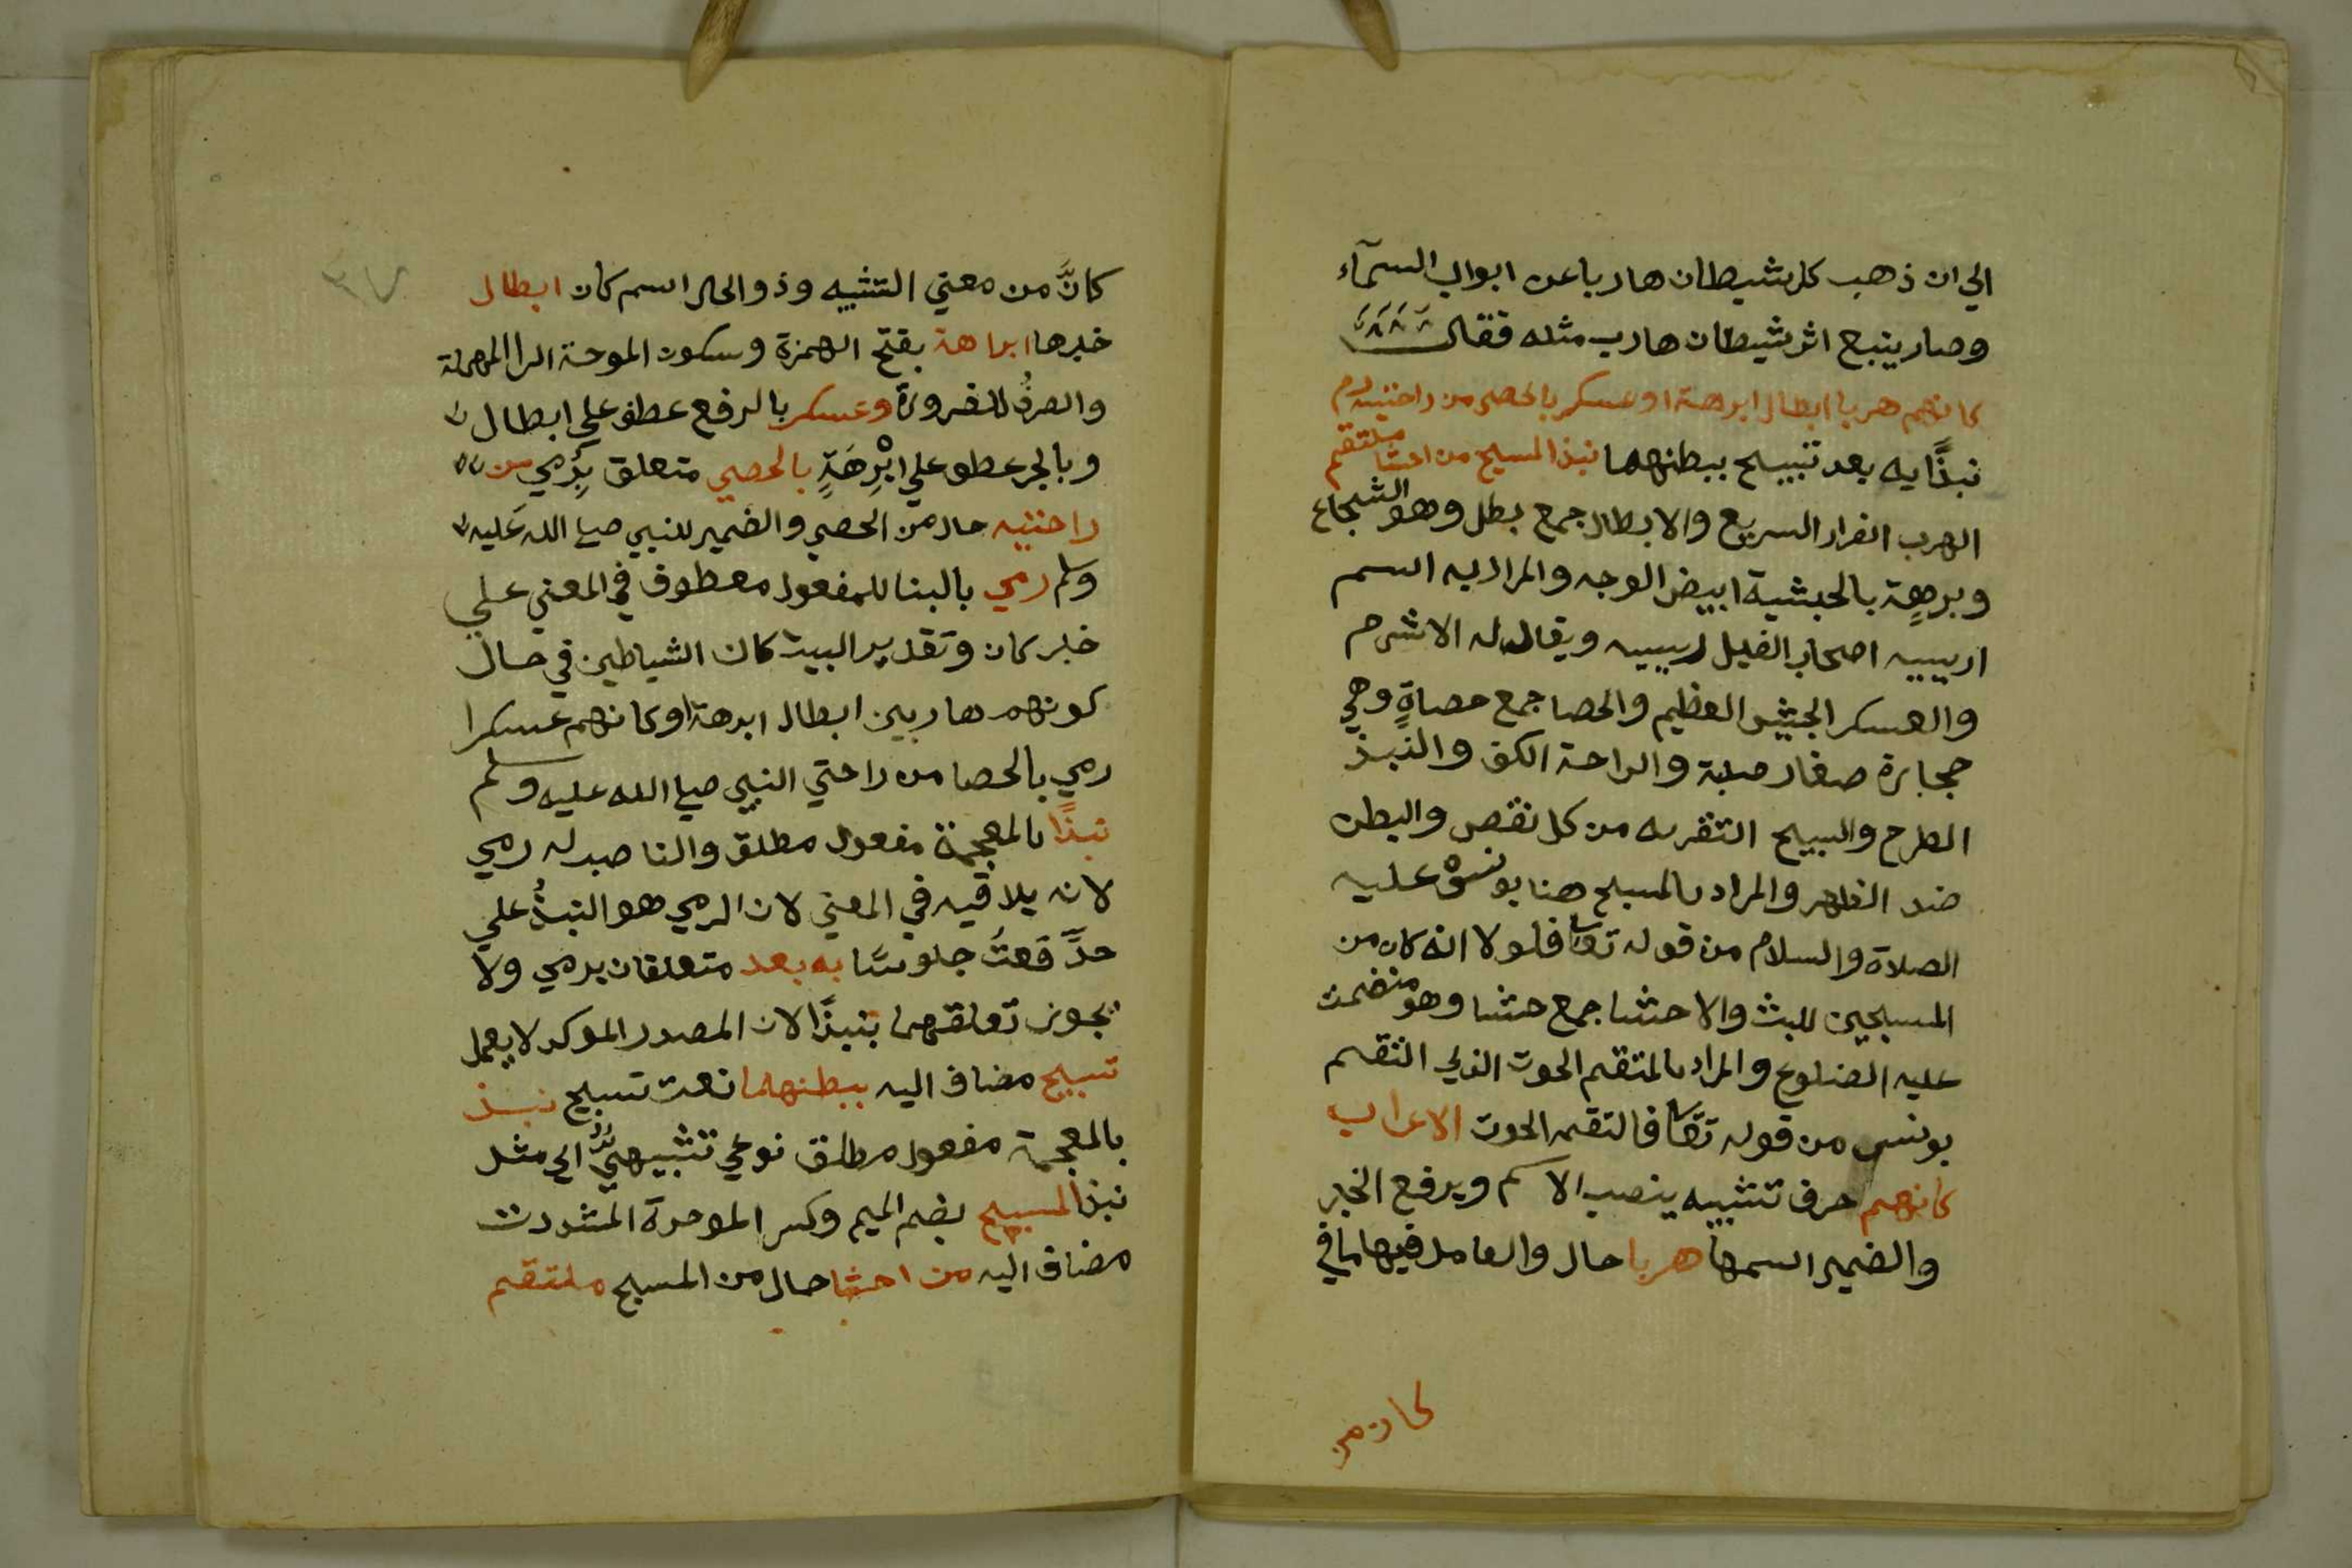 الي ان ذهب كل شيطان هاربا عن ابواب السمآء
وصار يتبع اثر شيطان هارب مثله فقال
كانهم هربا ابطال ابرهة او عسكر بالحصى من راحتيه رم
نبذًا به بعد تسبيح ببطنهما نبذ المسبح من احشا ملتقم
الهرب الفرار السريع والابطال جمع بطل وهو الشجاع
وبرهة بالحبشية ابيض الوجه والمراد به اسم
اصحاب الفيل ويقال له الاشرم
والعسكر الجيش العظيم والحصا جمع حصاةٍ وهي
حجارة صغار صلبة والراحة الكف والنبذ
الطرح والسبيح من كل نقص والبطن
ضد الظهر والمراد بالمسبح هنا يونس عليه
الصلاة والسلام من قوله تعا فلولا انه كان من
المسبحين للبث والاحشا جمع حشا وهو منضمت
عليه الضلوع والمراد بالملتقم الحوت الذي التقم
يونس من قوله تعا فالتقمه الحوت الاعراب
كانهم حرف تشبيه ينصب الاسم ويرفع الخبر
والضمير اسمها هربا حال والعامل فيها ما في
كان من
٣٧
كانَّ من معني التشبيه وذو الحال اسم كان ابطال
خبرها ابراهة بفتح الهمزة وسكون الموحدة الرا المهملة
والصرفُ للضرورة وعسكر بالرفع عطف علي ابطال
وبالجر عطف علي ابْرِهَةٍ بالحصي متعلق بِرُمي من
راحتيه حال من الحصي والضمير للنبي صلي الله عليه
وسلم رمي بالبنا للمفعول معطوف في المعني علي
خبر كان وتقدير البيت كان الشياطين في حال
كونهم هاربين ابطال ابرهة او كانهم عسكرا
رمي بالحصا من راحتي النبي صلي الله عليه وسلم
نبذًا بالمعجمة مفعول مطلق والناصب له رمي
لانه يلاقيه في المعني لان الرمي هو النبذُ علي
حدِّ قعدتُ جلوسًا به بعد متعلقان برمي ولا
يجوز تعلقهما بنبذًا لان المصدر الموكد لا يعمل
تسبيح مضاف اليه ببطنهما نعت تسبيح نبذ
بالمعجمة مفعول مطلق نوعي تشبيهيٌّ اي مثل
نبذ المسبح بضم الميم وكسر الموحدة المشددت
مضاف اليه من احشا حال من المسبح ملتقم